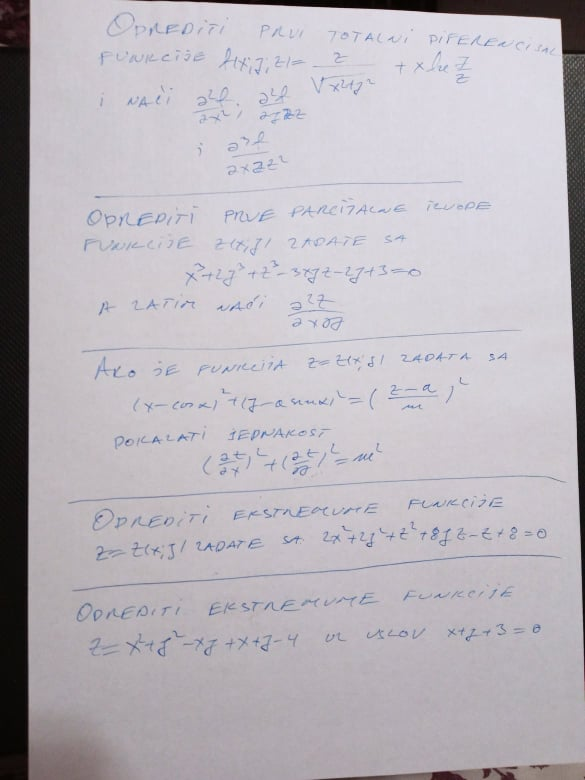 ODREDITI PRVI TOTALNI DIFERENCIJAL
FUNKCIJE f(x,y,z)= z/√(x²+y²) + x ln y/z
i NAĆI ∂²f/∂x² ; ∂²f/∂y∂z
i ∂³f/∂x∂z²
ODREDITI PRVE PARCIJALNE IZVODE
FUNKCIJE z(x,y) ZADATE SA
x³+2y³+z³-3xyz-2y+3=0
A ZATIM NAĆI ∂²z/∂x∂y
AKO JE FUNKCIJA z=z(x,y) ZADATA SA
(x-cosα)²+(y-a sinα)²=(z-a/m)²
POKAZATI JEDNAKOST
(∂z/∂x)²+(∂z/∂y)²=m²
ODREDITI EKSTREMUME FUNKCIJE
z=z(x,y) ZADATE SA 2x²+2y²+z²+8yz-z+8=0
ODREDITI EKSTREMUME FUNKCIJE
z=x²+y²-xy+x+y-4 UZ USLOV x+y+3=0